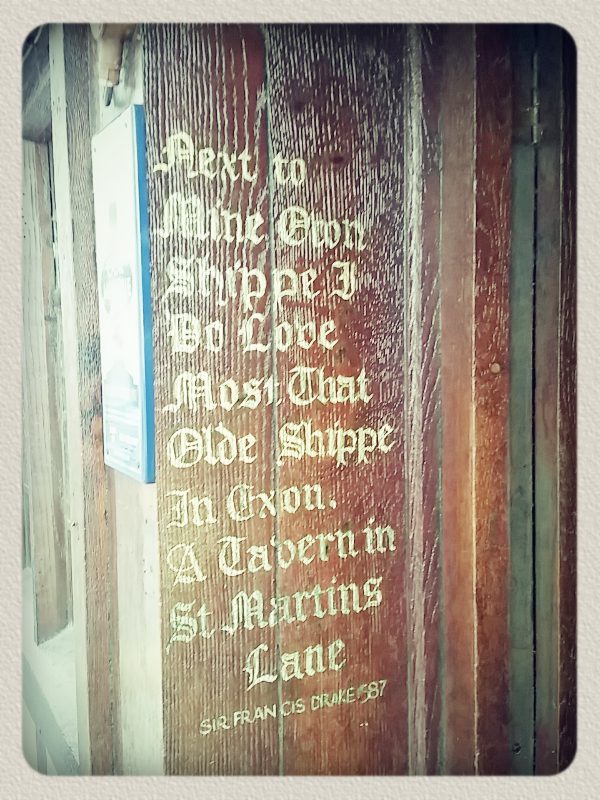 Next to
Mine Own
Shippe I
Do Love
Most That
Olde Shippe
In Exon.
A Tavern in
St Martins
Lane
SIR FRANCIS DRAKE 1587